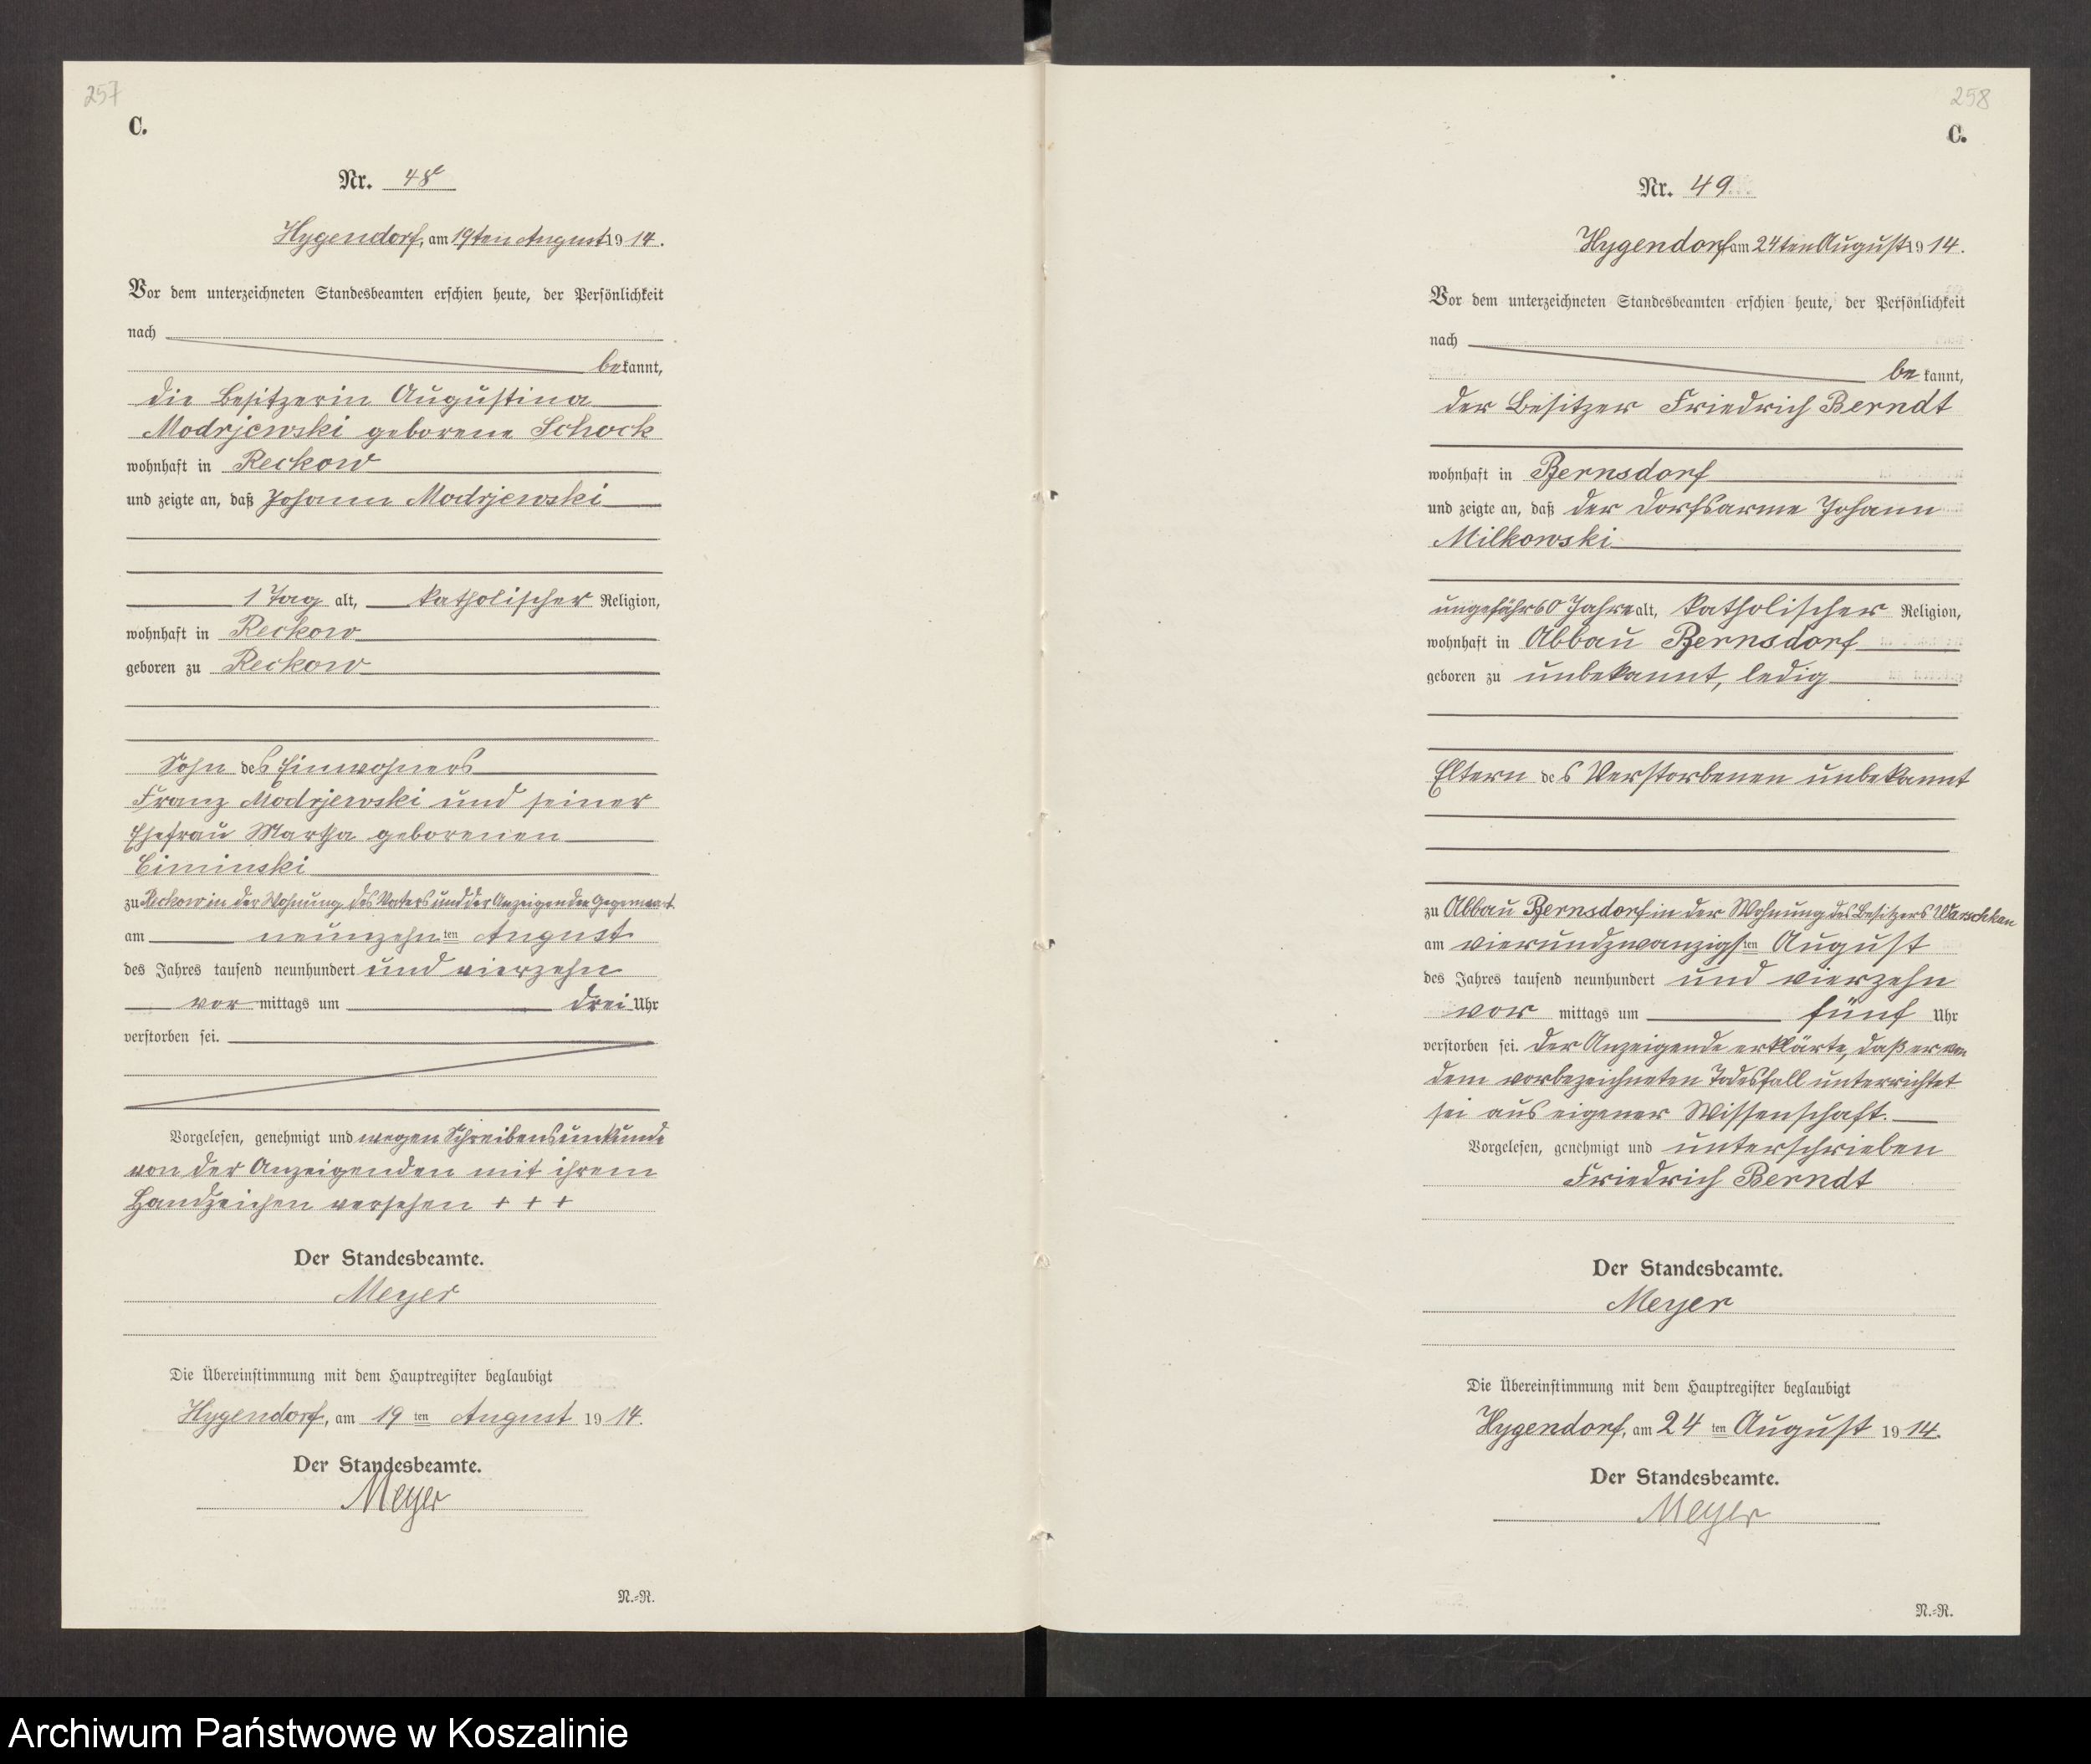 257
C.
Nr. 48
Hygendorf, am 19ten August 1914.
Vor dem unterzeichneten Standesbeamten erschien heute, der Persönlichkeit
nach
bekannt,
die Besitzerin Augustina
Modrjewski geborene Schock
wohnhaft in Reckow
und zeigte an, daß Johann Modrjewski
1 Tag alt, katholischer Religion,
wohnhaft in Reckow
geboren zu Reckow
Sohn des Einwohners
Franz Modrjewski und seiner
Ehefrau Martha geborenen
Ciminski
zu Reckow in der Wohnung des Vaters und der Anzeigenden Gegenwart
am neunzehnten August
des Jahres tausend neunhundert und vierzehn
vor mittags um drei Uhr
verstorben sei.
Vorgelesen, genehmigt und wegen Schreibensunkunde
von der Anzeigenden mit ihrem
Handzeichen versehen + + +
Der Standesbeamte.
Meyer
Die Übereinstimmung mit dem Hauptregister beglaubigt
Hygendorf, am 19ten August 1914.
Der Standesbeamte.
Meyer
N.=R.
258
C.
Nr. 49
Hygendorf am 24ten August 1914.
Vor dem unterzeichneten Standesbeamten erschien heute, der Persönlichkeit
nach
bekannt,
der Besitzer Friedrich Berndt
wohnhaft in Bernsdorf
und zeigte an, daß der Dorfsarme Johann
Milkowski
ungefähr 60 Jahre alt, katholischer Religion,
wohnhaft in Abbau Bernsdorf
geboren zu unbekannt, ledig
Eltern des Verstorbenen unbekannt
zu Abbau Bernsdorf in der Wohnung des Besitzers Warschkau
am vierundzwanzigsten August
des Jahres tausend neunhundert und vierzehn
vor mittags um fünf Uhr
verstorben sei. Der Anzeigende erklärte, daß er von
dem vorbezeichneten Todesfall unterrichtet
sei aus eigener Wissenschaft.
Vorgelesen, genehmigt und unterschrieben
Friedrich Berndt
Der Standesbeamte.
Meyer
Die Übereinstimmung mit dem Hauptregister beglaubigt
Hygendorf, am 24ten August 1914.
Der Standesbeamte.
Meyer
N.=R.
Archiwum Państwowe w Koszalinie